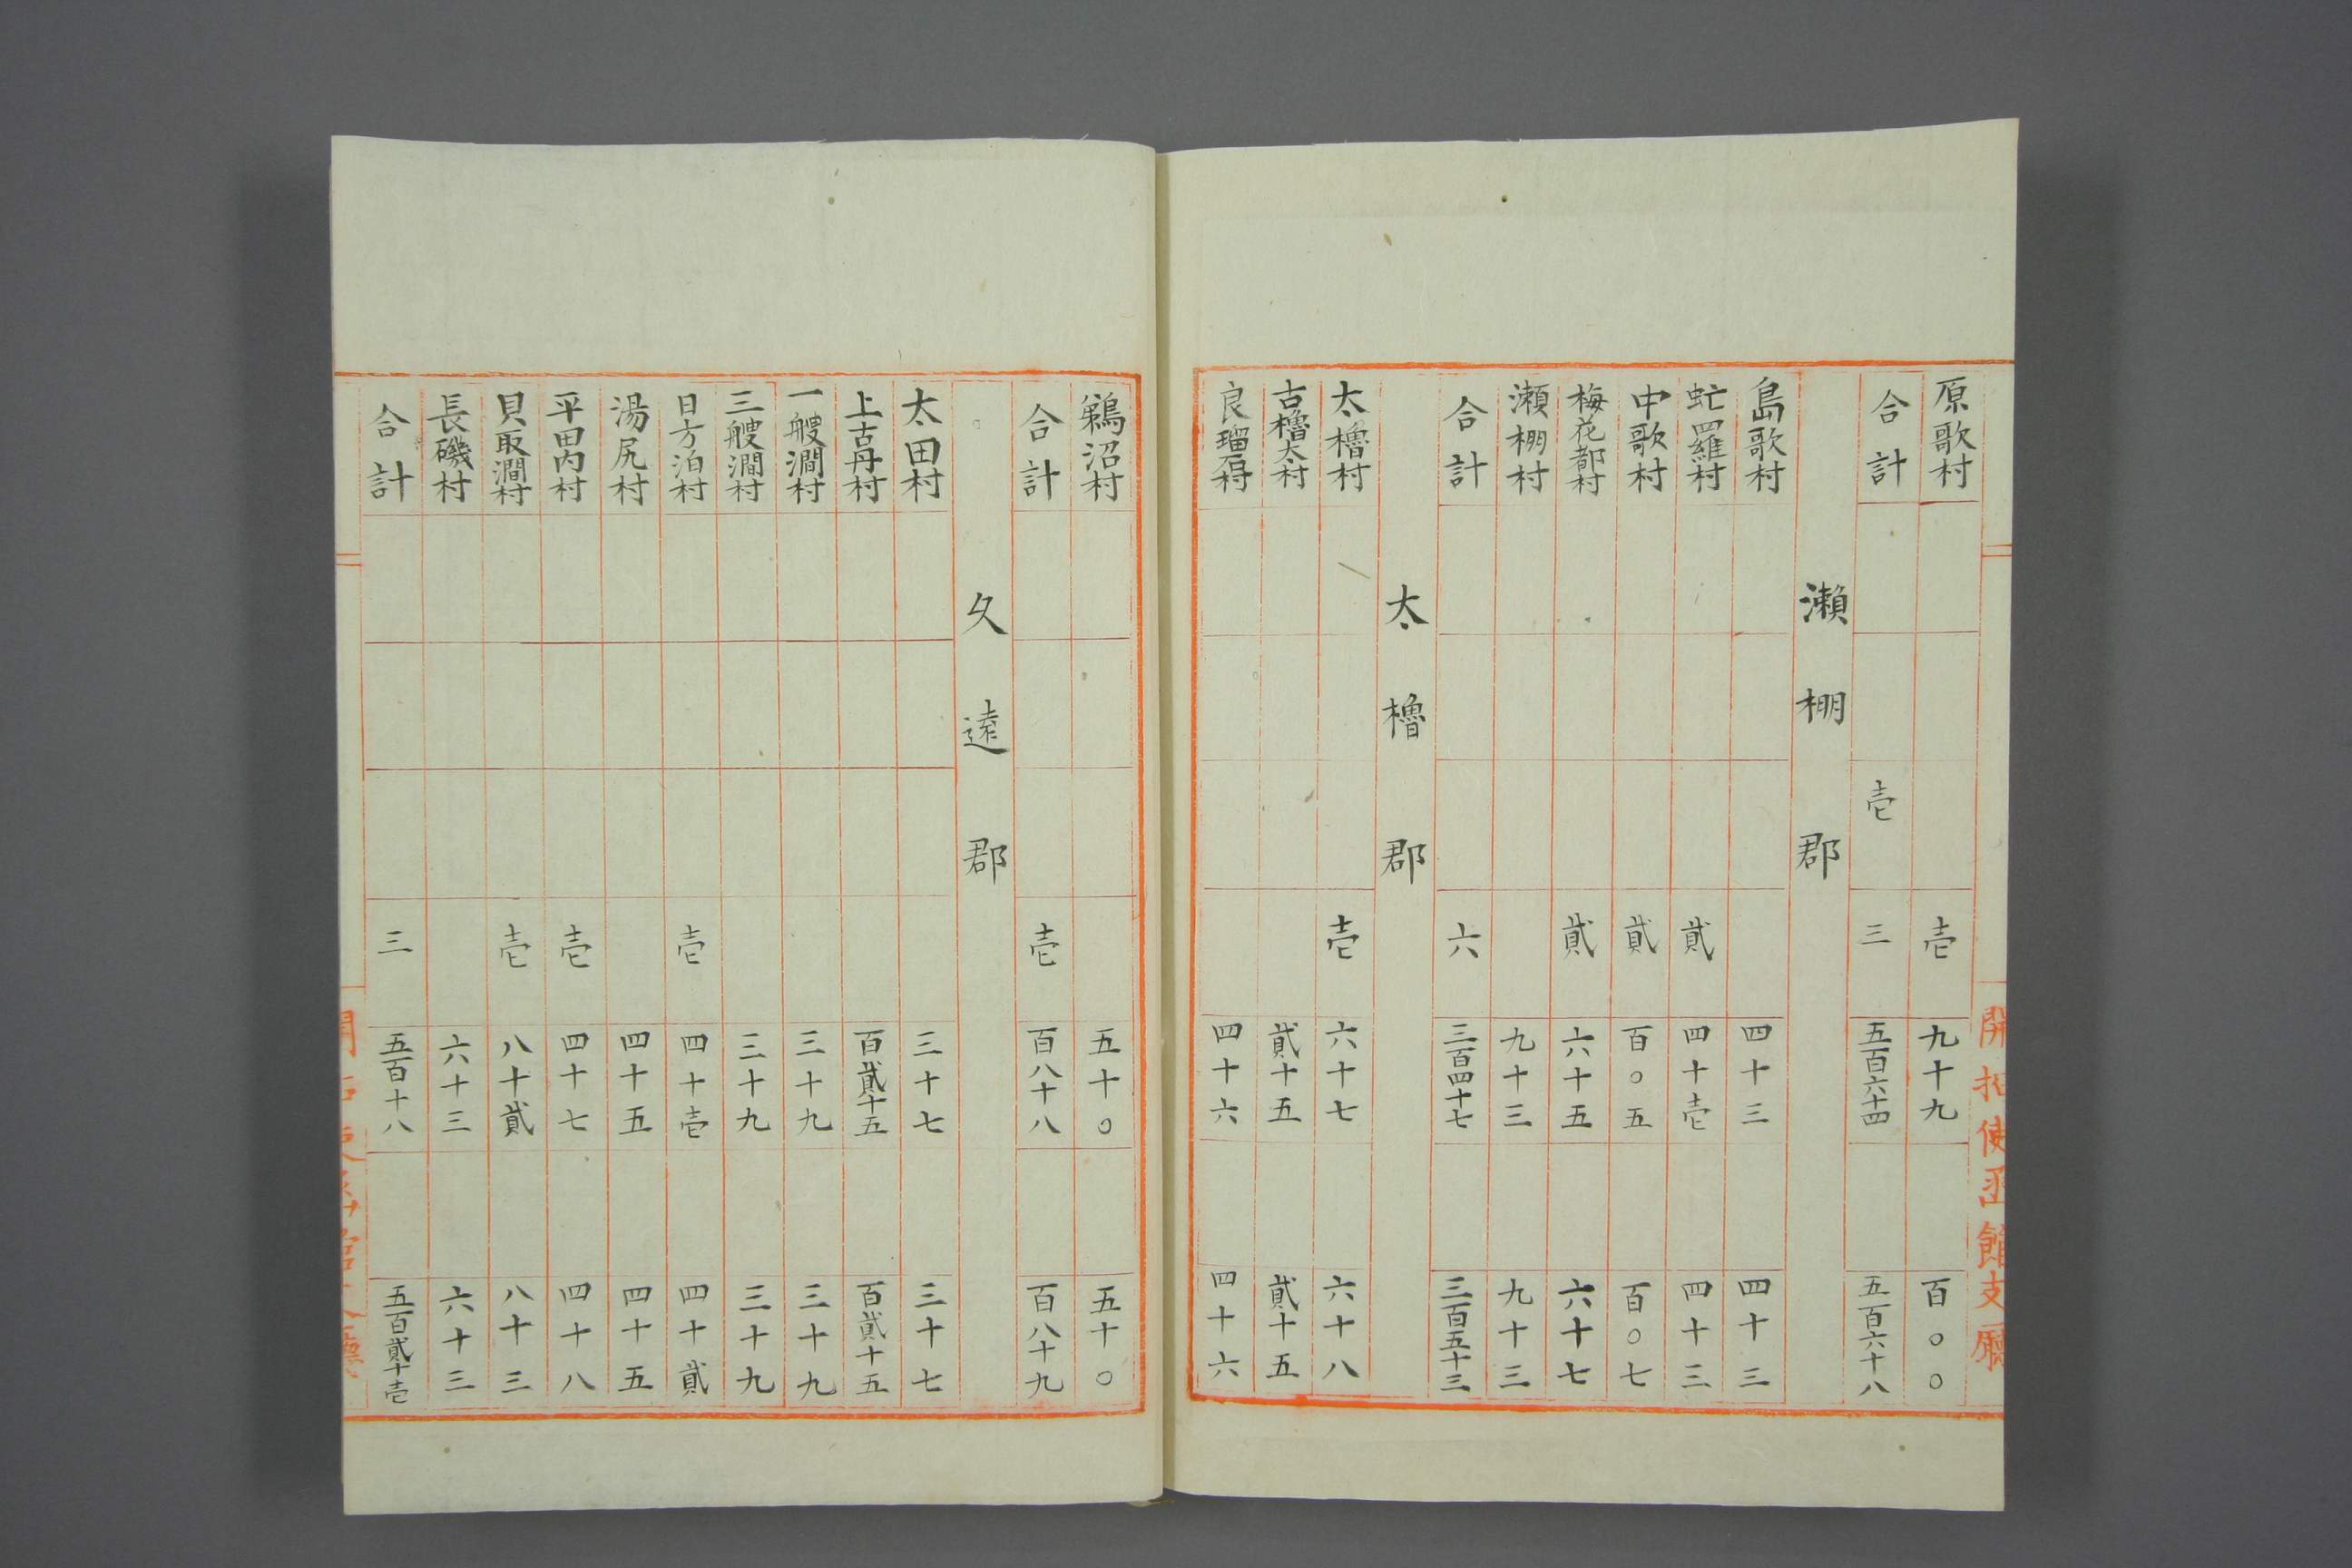 開拓使函館支廳
原歌村 壱 九十九 百〇〇
合計 壱 三 五百六十四 五百六十八
瀬棚郡
島歌村 四十三 四十三
虻羅村 貳 四十壱 四十三
中歌村 貳 百〇五 百〇七
梅花都村 貳 六十五 六十七
瀬棚村 九十三 九十三
合計 六 三百四十七 三百五十三
太櫓郡
太櫓村 壱 六十七 六十八
古櫓太村 貳十五 貳十五
良瑠石村 四十六 四十六
鵜沼村 五十〇 五十〇
合計 壱 百八十八 百八十九
久遠郡
太田村 三十七 三十七
上古丹村 百貳十五 百貳十五
一艘澗村 三十九 三十九
三艘澗村 三十九 三十九
日方泊村 壱 四十壱 四十貳
湯尻村 四十五 四十五
平田内村 壱 四十七 四十八
貝取澗村 壱 八十貳 八十三
長磯村 六十三 六十三
合計 三 五百十八 五百貳十壱